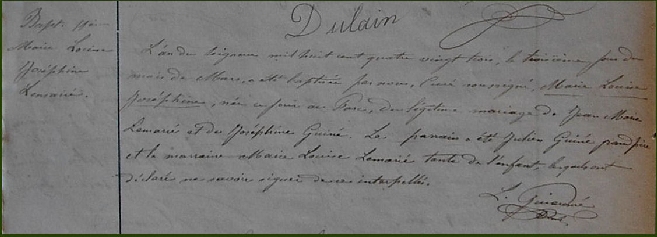 Dulain
Bapt.
Marie Louise
Joséphine
Lemarié.
L'an du Seigneur mil huit cent quatre vingt trois, le troisième jour du
mois de Mars, a été baptisée par nous, Curé soussigné, Marie Louise
Joséphine, née ce jour au du légitime mariage de Jean Marie
Lemarié et de Joséphine Guiné. Le parrain a été Julien Guiné, grand père
et la marraine Marie Louise Lemarié tante de l'enfant, lesquels ont
déclaré ne savoir signer de ce interpellés.
L.